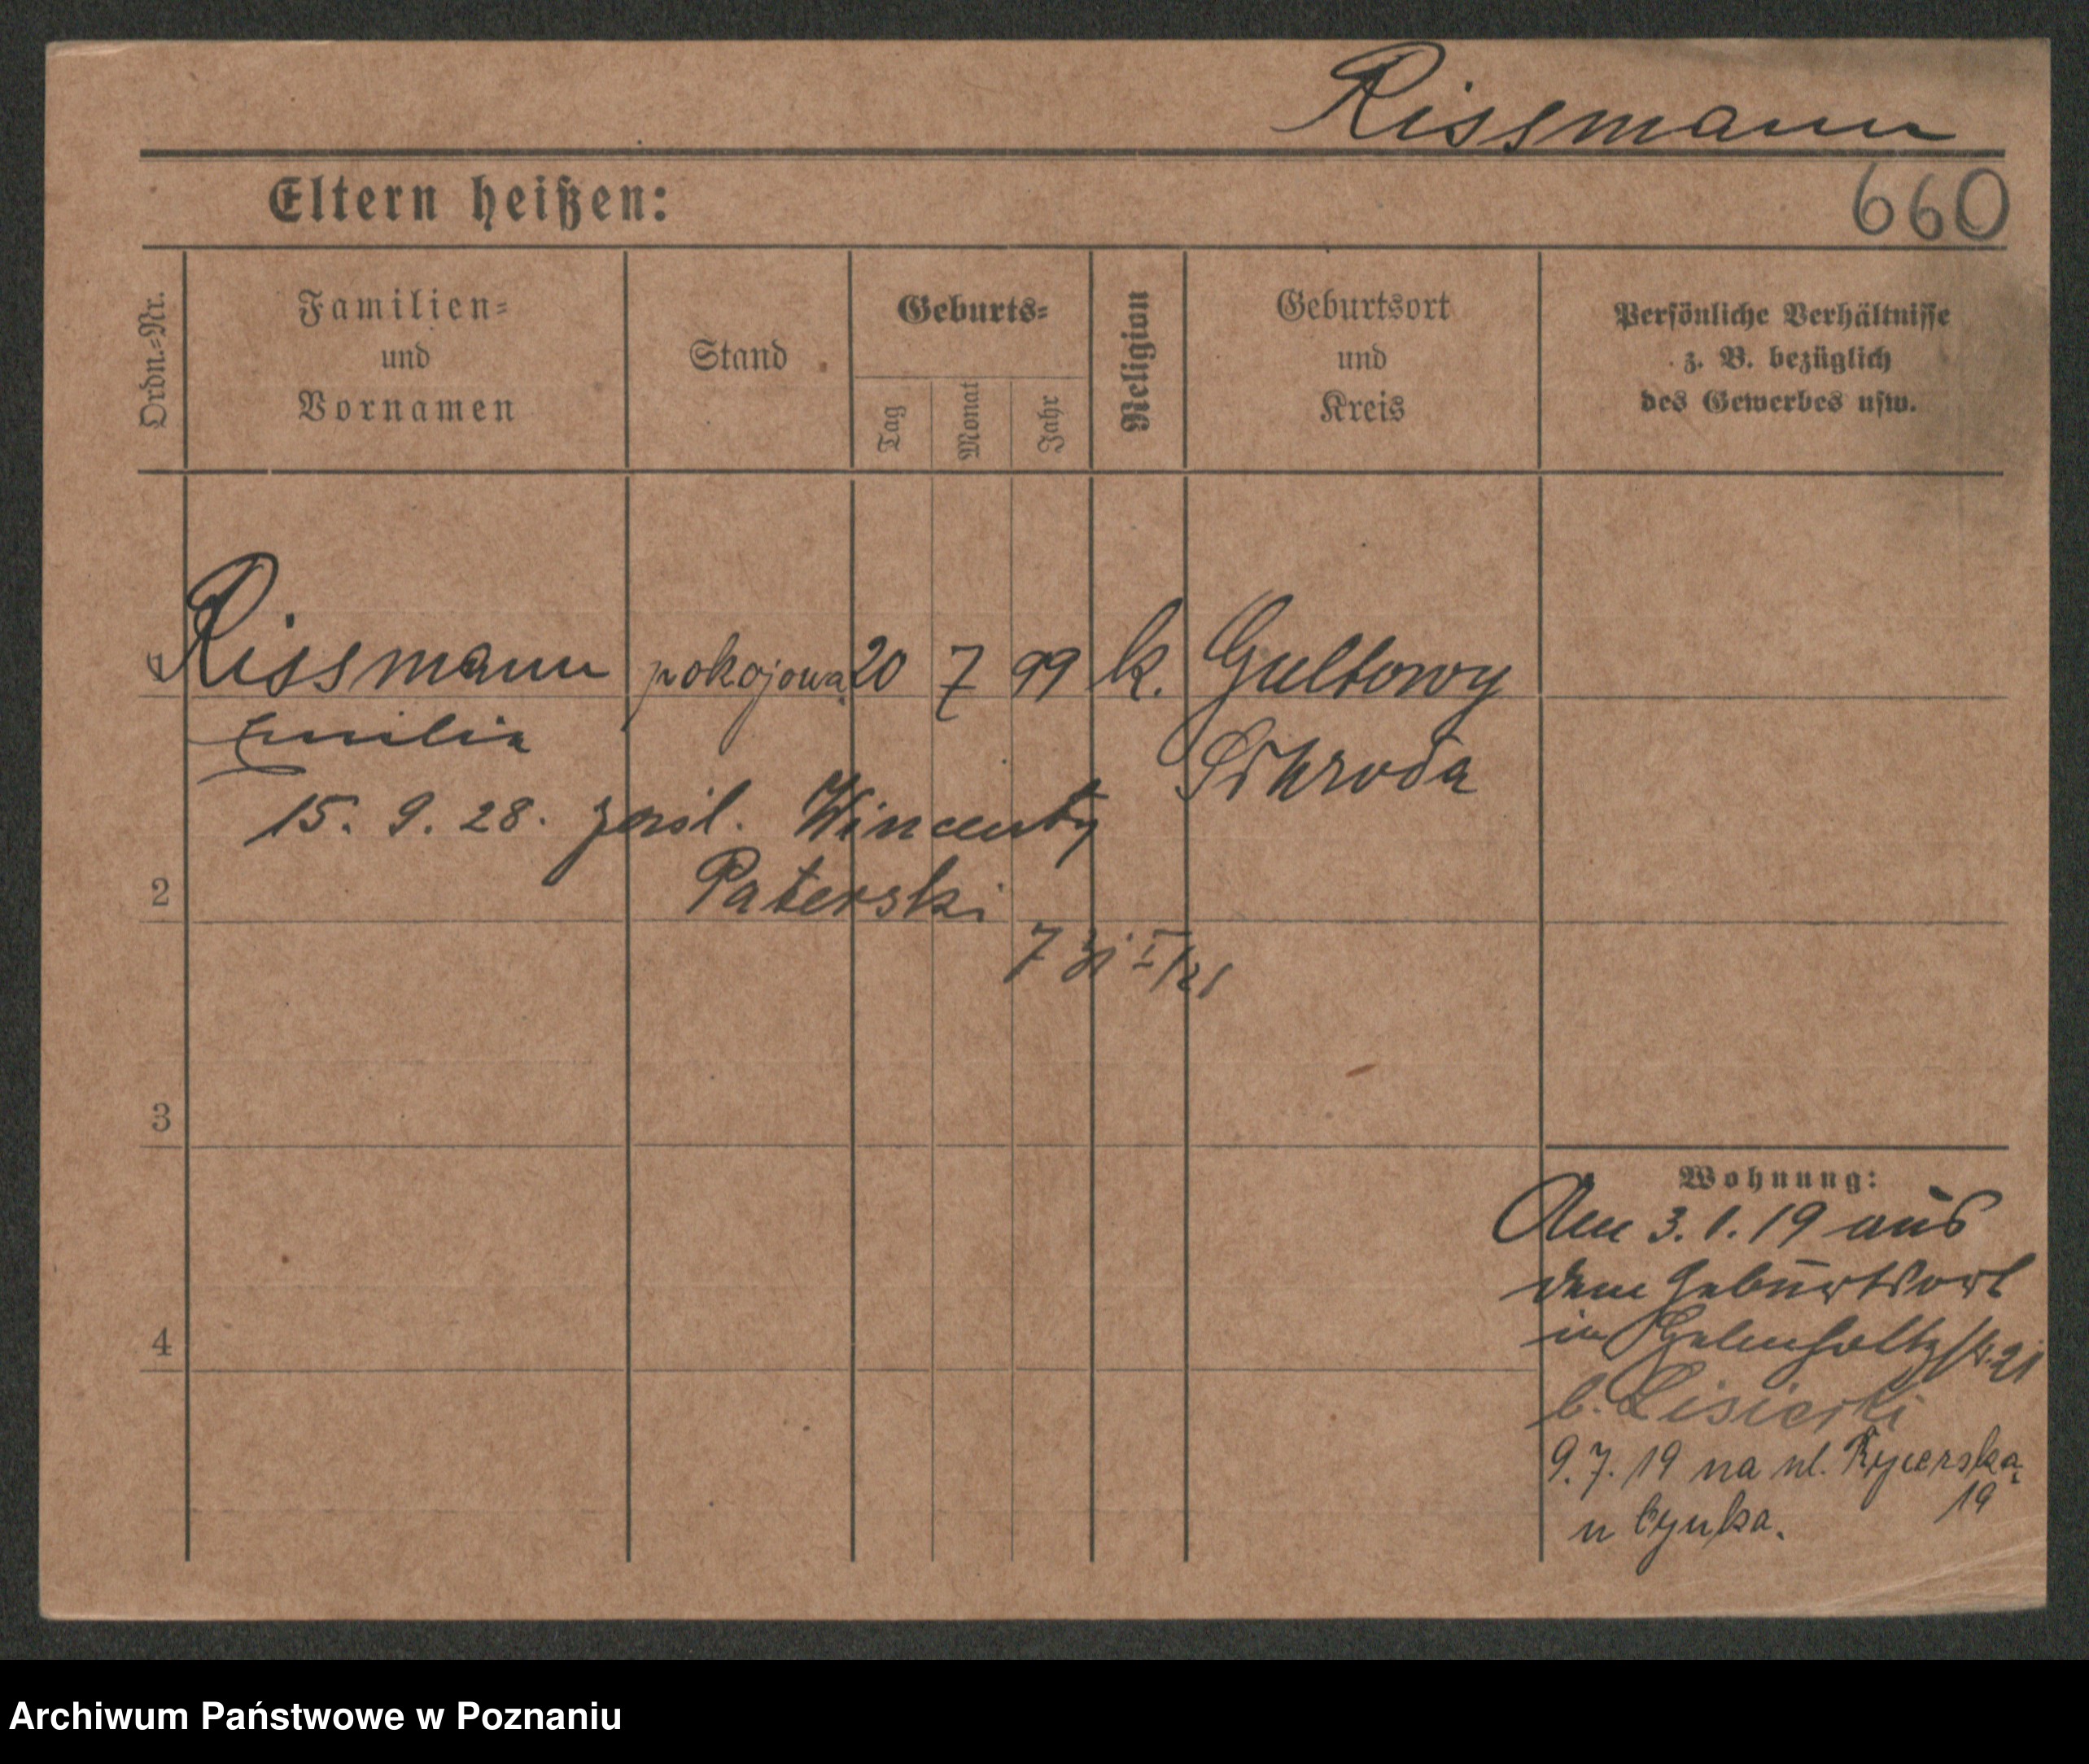 Rissmann
Eltern heißen:
660
Ordn.-Nr.
Familien-
und
Vornamen
Stand
Geburts-
Tag
Monat
Jahr
Religion
Geburtsort
und
Kreis
Persönliche Verhältnisse
z. B. bezüglich
des Gewerbes usw.
1 Rissmann pokojowa 20 7 99 k. Gultowy
Emilia
Schroda
15. 9. 28. zaśl. Wincenty
2 Paterski
7
3
Wohnung:
Am 3.1.19 aus
dem Geburtsort
4
in 21
b. Lisiecki
9.7.19 na ul. Rycerską
19
u
Archiwum Państwowe w Poznaniu